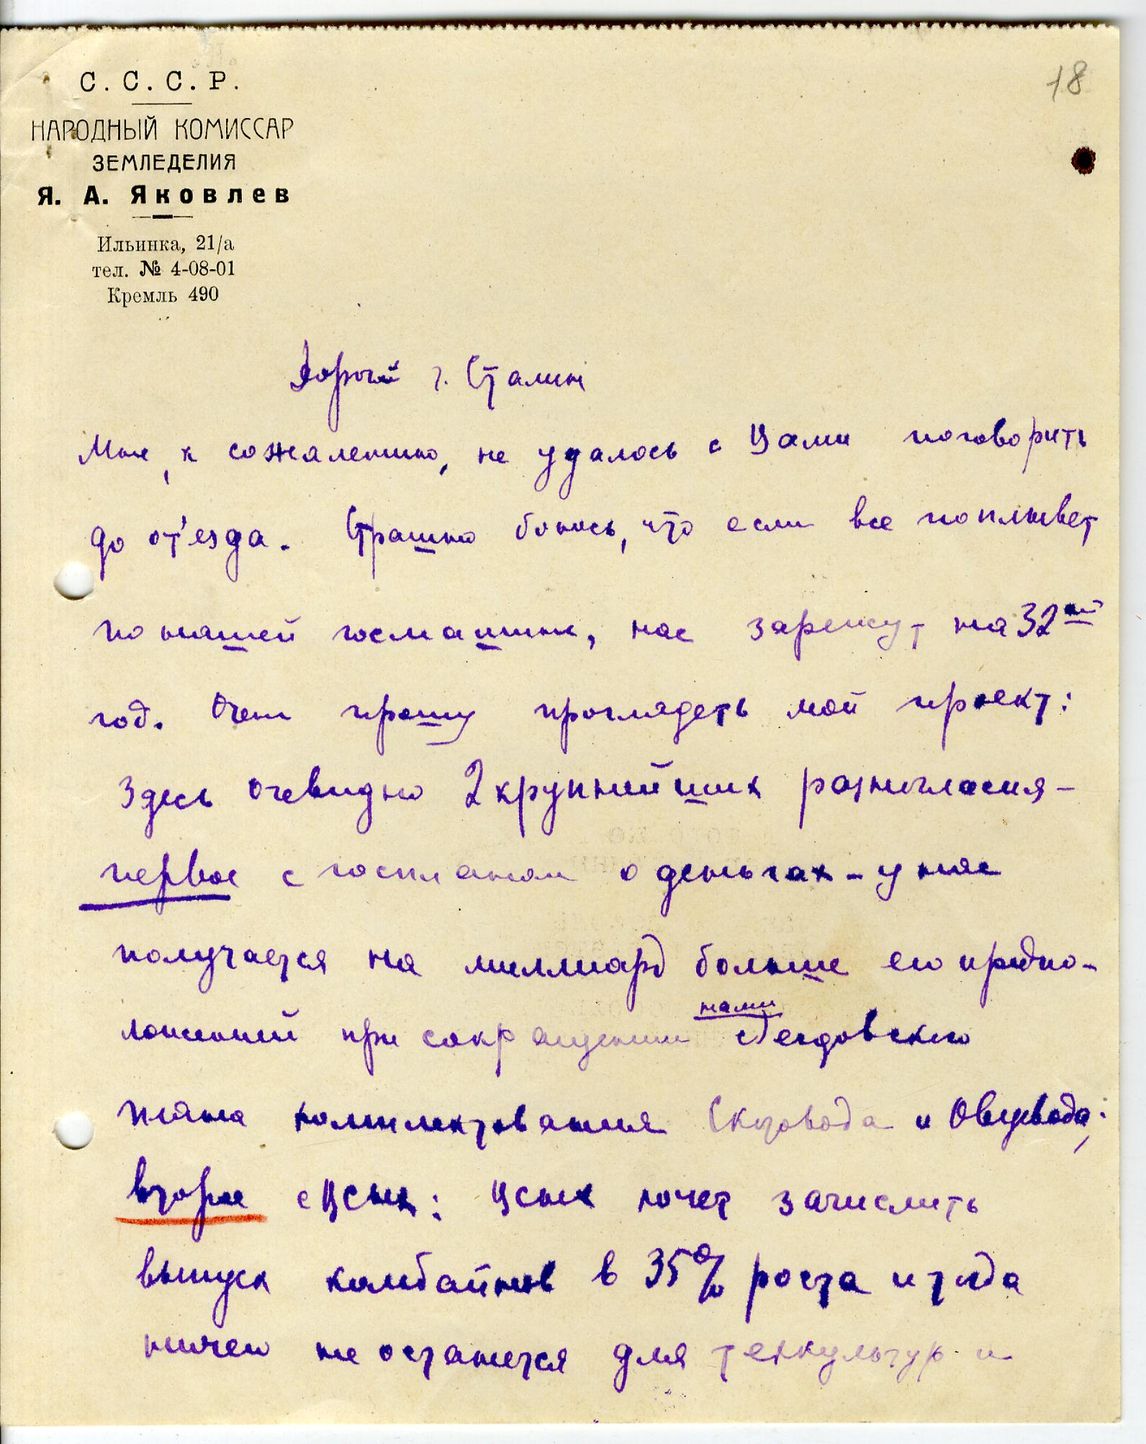 С. С. С. Р.
НАРОДНЫЙ КОМИССАР
ЗЕМЛЕДЕЛИЯ
Я. А. Яковлев
Ильинка, 21/а
тел. № 4-08-01
Кремль 490
18
Дорогой т. Сталин
Мне, к сожалению, не удалось с Вами поговорить
до от'езда. Страшно боюсь, что если все поплывет
по нашей госмашине, нас зарежут на 32ой
год. Очень прошу проглядеть мой проект:
Здесь очевидно 2 крупнейших разногласия –
первое с госпланом о деньгах – у нас
получается на миллиард больше его предпо-
ложений при сокращении нами
плана комплектования Скотовода и Овцевода;
второе с ЦСНХ: ЦСНХ хочет зачислить
выпуск комбайнов в 35% роста и тогда
ничего не останется для техкультур и